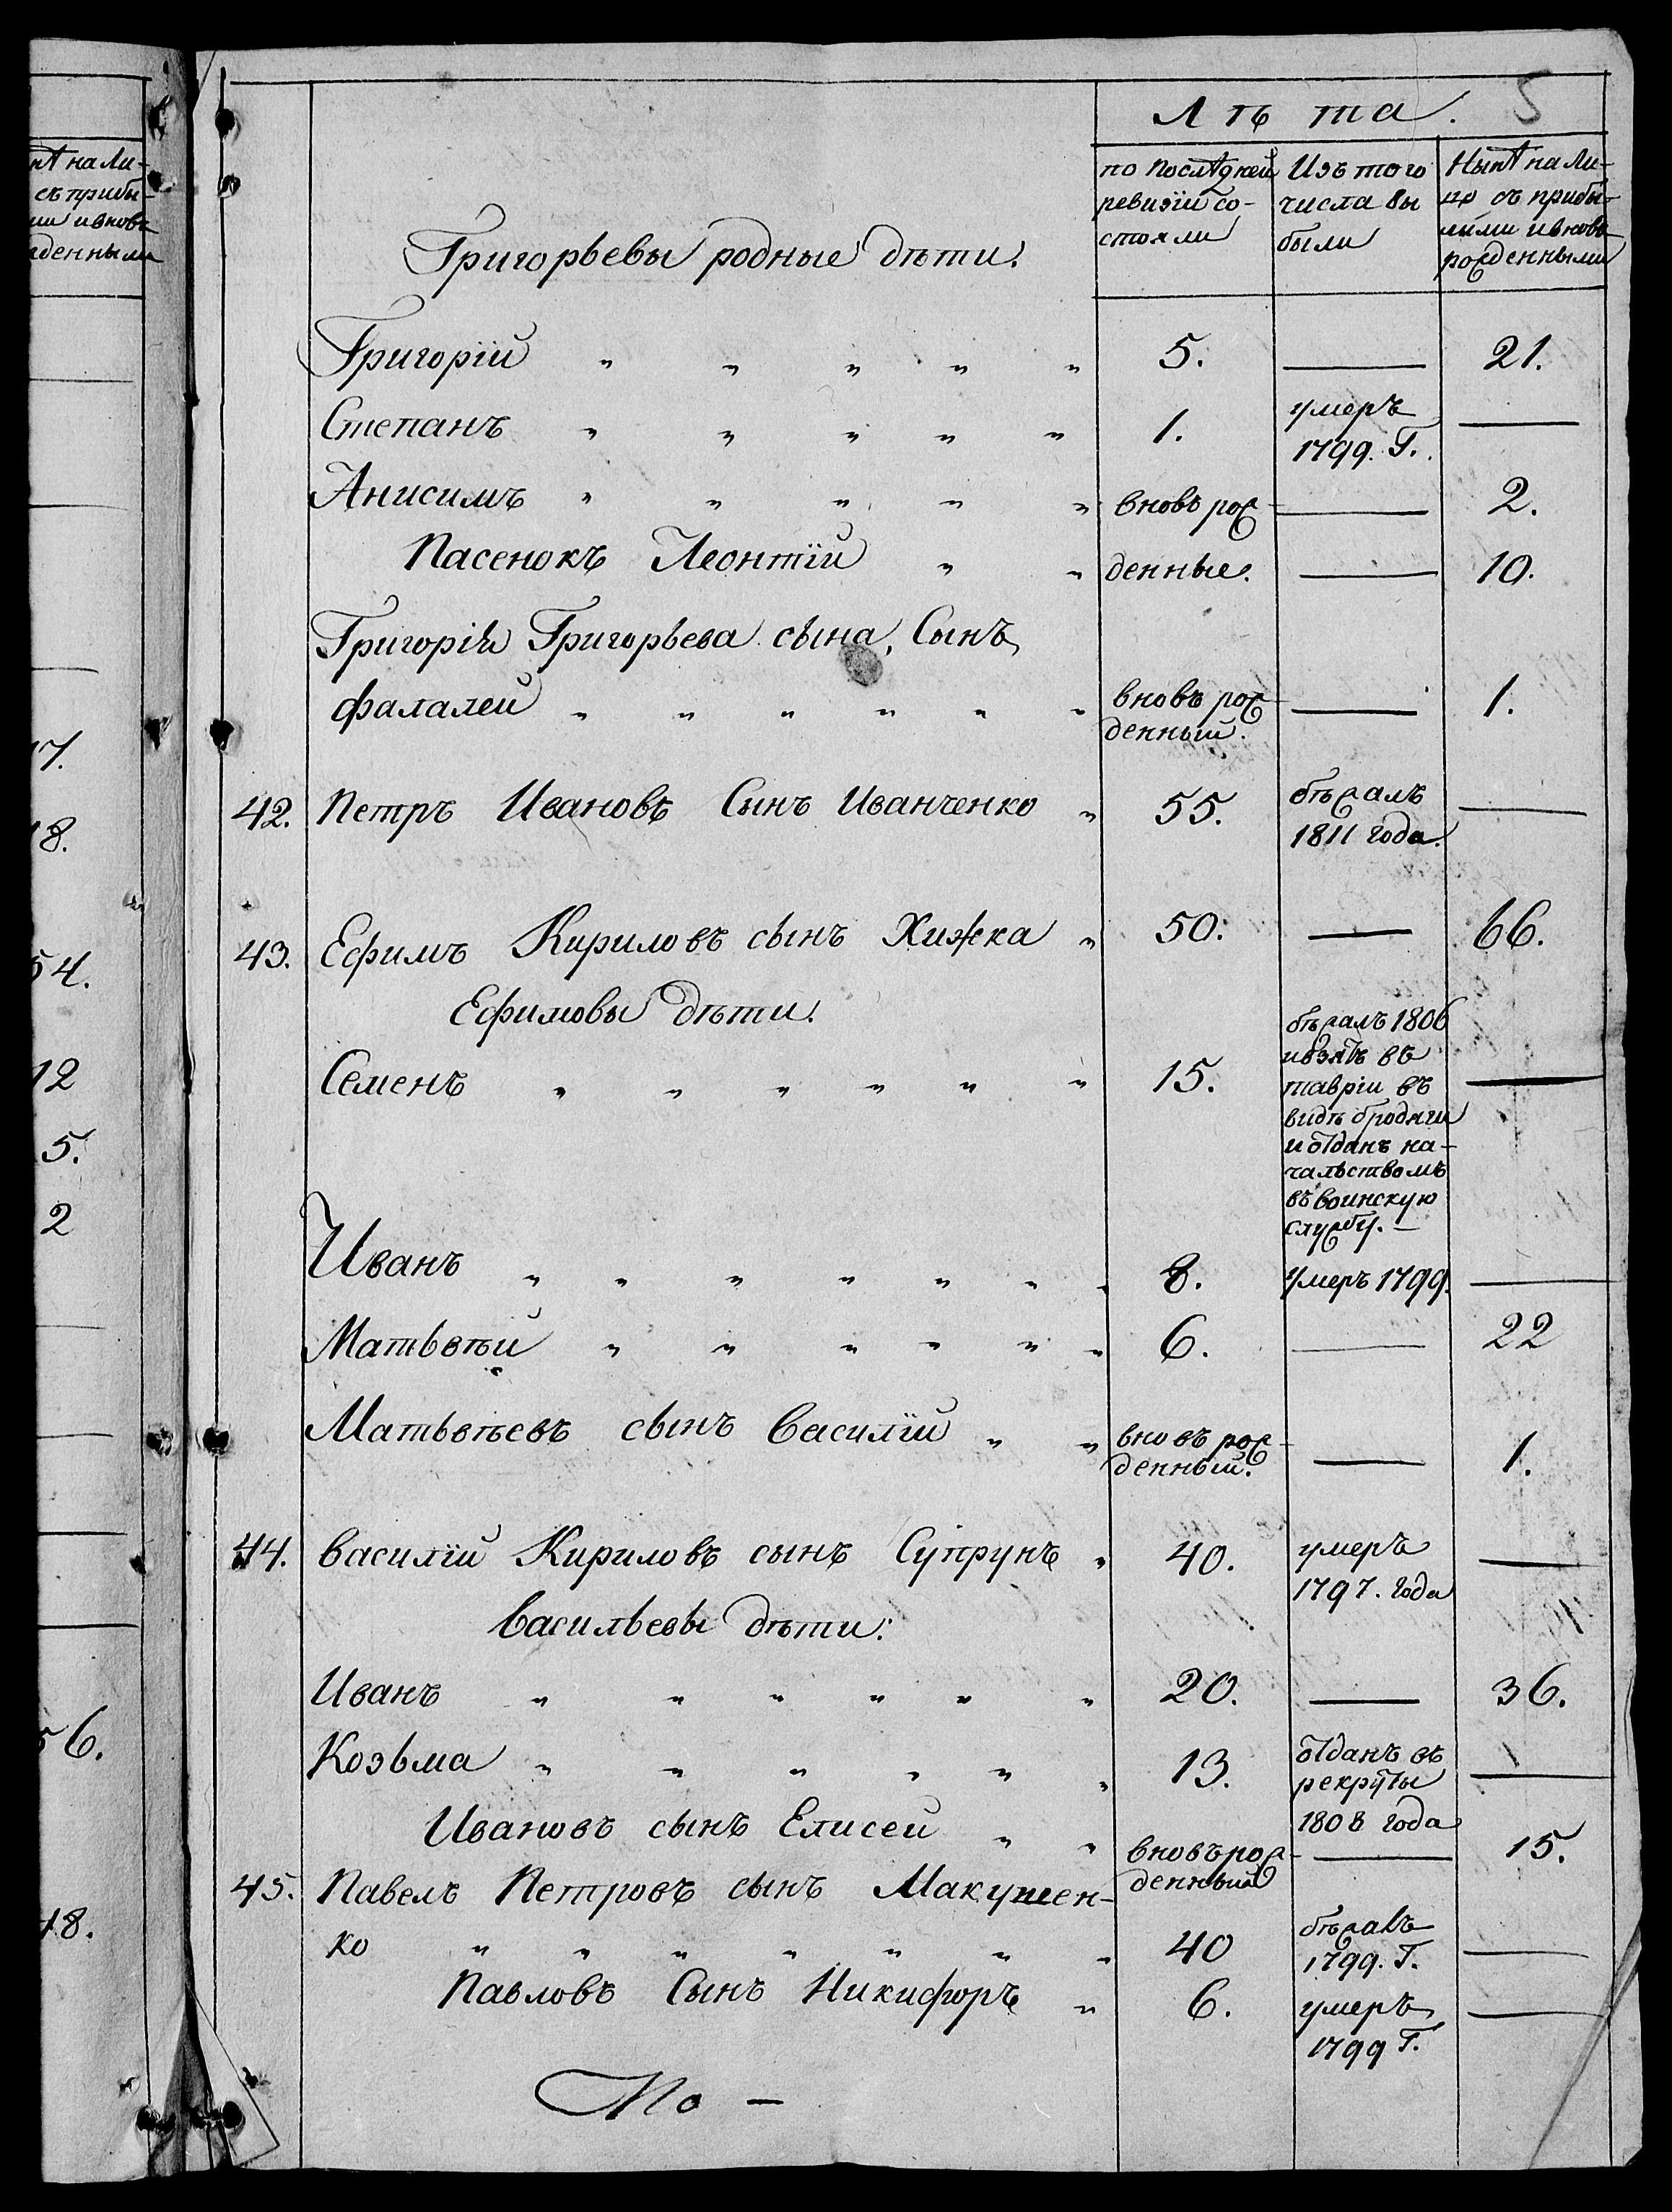 нѣ нали-
съ прибы-
ми ивновь
жденными
17.
18.
54.
12
5.
2
56.
18.
5
Лѣта.
по Послѣдней
ревизіи со-
стояли
Изъ того
числа вы
были
Нынѣ нали-
цо съ прибы-
лыми ивновь
рожденными
Григорьевы родные дѣти.
Григорій " " " " " 5. — 21.
Степанъ " " " " " 1. умеръ
1799. Г. —
Анисимъ " " " " " вновь рож- — 2.
Пасенокъ Леонтій " " денные. — 10.
Григорія Григорьева сына, Сынъ
фалалей " " " " " " вновь рож- — 1.
денный.
42. Петръ Ивановъ Сынъ Иванченко " 55. бѣжалъ —
1811 года.
43. Ефимъ Кириловъ сынъ Хижка " 50. — 66.
Ефимовы дѣти.
Семенъ " " " " " " 15. —
бѣжалъ 1806
ивзятъ въ
тавріи въ
видѣ бродяги
и отданъ на-
чальствомъ
въ воинскую
службу. —
Иванъ " " " " " " " 8. Умеръ 1799. —
Матьвѣй " " " " " " 6. — 22
Матьвѣевъ сынъ Василій " " вновь рож- — 1.
денный.
44. Василій Кириловъ сынъ Супрунъ " 40. умеръ —
1797. года
Васильевы дѣти:
Иванъ " " " " " " 20. — 36.
Козьма " " " " " " 13. отданъ въ —
рекруты
1808 года
Ивановъ сынъ Елисей " " вновь рож- — 15.
денный
45. Павелъ Петровъ сынъ Макушен-
ко " " " " " " " 40 бѣжалъ —
1799. Г.
Павловъ Сынъ Никифоръ " 6. умеръ —
1799 Г.
Мо —